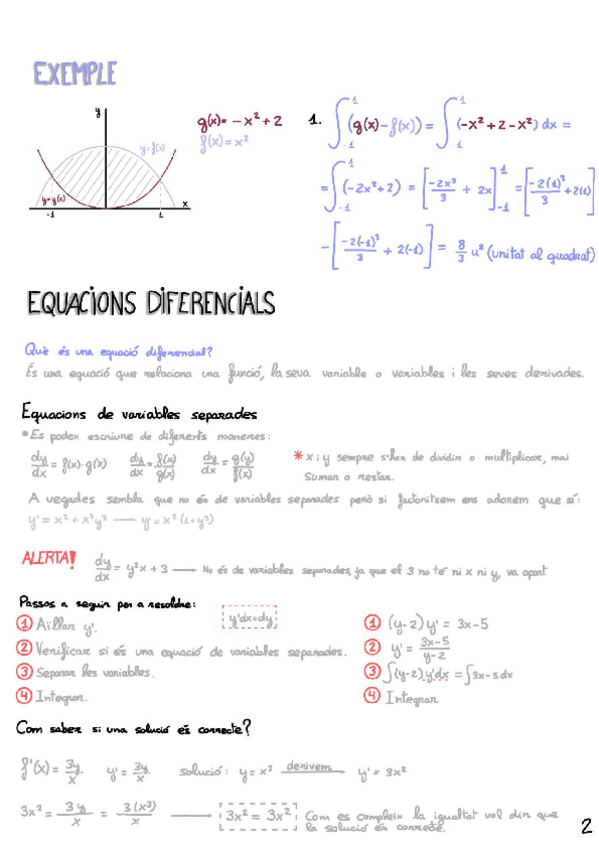 EXEMPLE
y
y=f(x)
y=g(x)
-1
1
x
g(x)= -x²+2
f(x)=x²
1. ∫₋₁¹ (g(x)-f(x)) = ∫₋₁¹ (-x²+2-x²) dx =
= ∫₋₁¹ (-2x²+2) = [-2x³/3 + 2x]₋₁¹ = [-2(1)³/3 + 2(1)]
- [-2(-1)³/3 + 2(-1)] = 8/3 u² (unitat al quadrat)
EQUACIONS DIFERENCIALS
Què és una equació diferencial?
És una equació que relaciona una funció, la seva variable o variables i les seves derivades.
Equacions de variables separades
*Es poden escriure de diferents maneres:
dy/dx = f(x)·g(x) dy/dx = f(x)/g(x) dy/dx = g(y)/f(x)
* x i y sempre s'han de dividir o multiplicar, mai
sumar o restar.
A vegades sembla que no és de variables separades però si factoritzem ens adonem que sí:
y' = x² + x²y³ — y' = x² (1+y³)
ALERTA!
dy/dx = y²x + 3 — No és de variables separades, ja que el 3 no té ni x ni y, va apart
Passos a seguir per a resoldre:
y'dx=dy
1 Aïllar y'.
2 Verificar si és una equació de variables separades.
3 Separar les variables.
4 Integrar.
1 (y-2) y' = 3x-5
2 y' = 3x-5/y-2
3 ∫(y-2) y'dx = ∫3x-5 dx
4 Integrar
Com saber si una solució és correcte?
f'(x) = 3y/x y' = 3y/x solució: y = x³ derivem y' = 3x²
3x² = 3y/x = 3(x³)/x 3x² = 3x² Com es compleix la igualtat vol dir que
la solució és correcte.
2